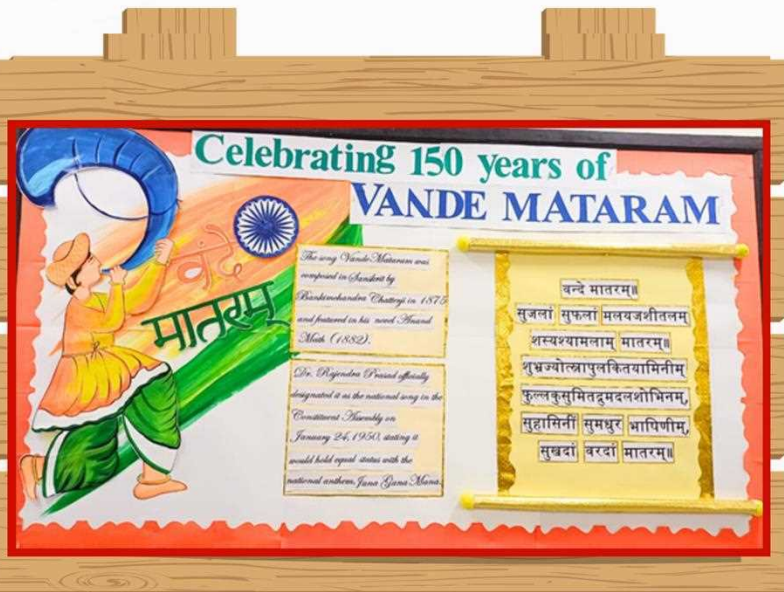 Celebrating 150 years of
VANDE MATARAM
वंदे
मातरम्
The song Vande Mataram was
composed in Sanskrit by
Bankimchandra Chatterji in 1875
and featured in his novel Anand
Math (1882).
Dr. Rajendra Prasad officially
designated it as the national song in the
Constituent Assembly on
January 24, 1950, stating it
would hold equal status with the
national anthem, Jana Gana Mana.
वन्दे मातरम्॥
सुजलां सुफलां मलयजशीतलम्
शस्यश्यामलाम् मातरम्॥
शुभ्रज्योत्स्नापुलकितयामिनीम्
फुल्लकुसुमितद्रुमदलशोभिनम्,
सुहासिनीं सुमधुर भाषिणीम्,
सुखदां वरदां मातरम्॥